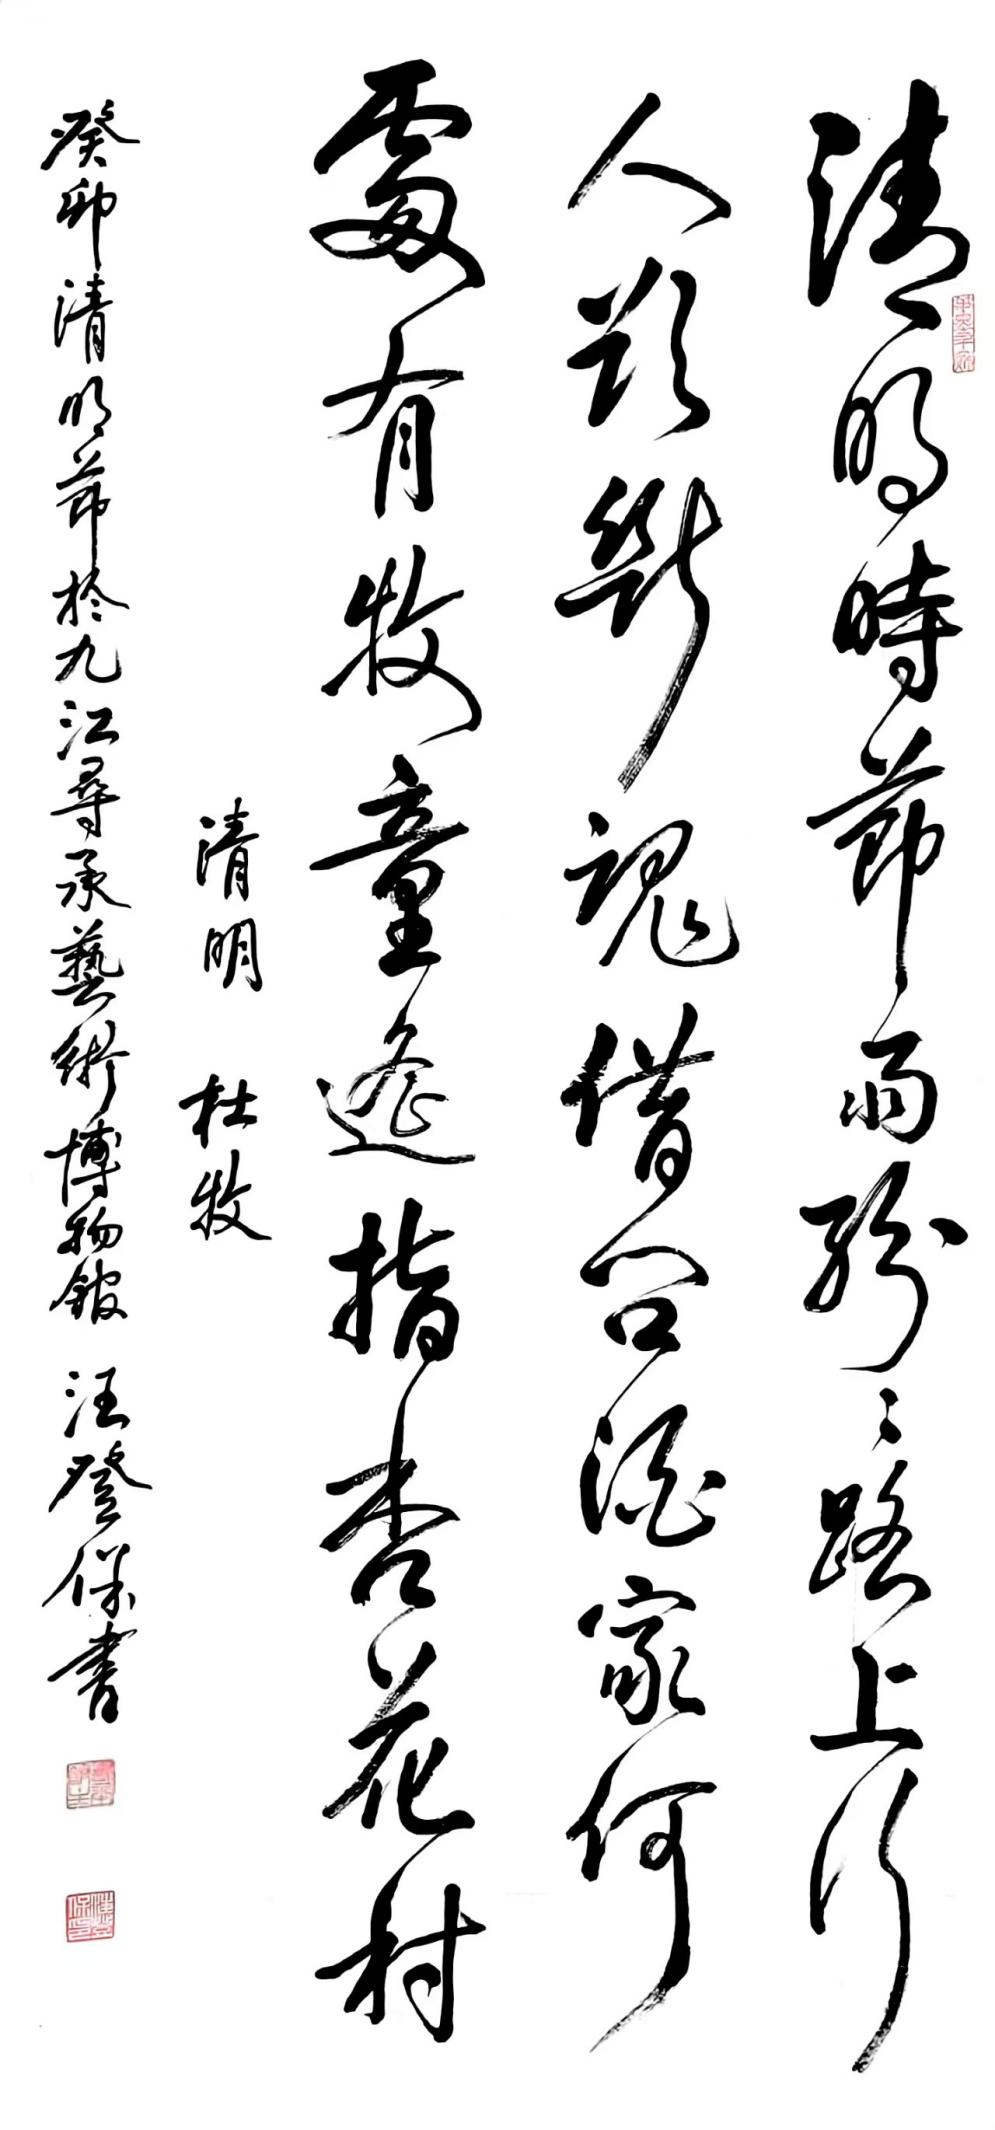 清明時節雨紛〻路上行
人欲斷魂借问酒家何
處有牧童遙指杏花村
清明 杜牧
癸卯清明節於九江尋承藝術博物館 汪登保書